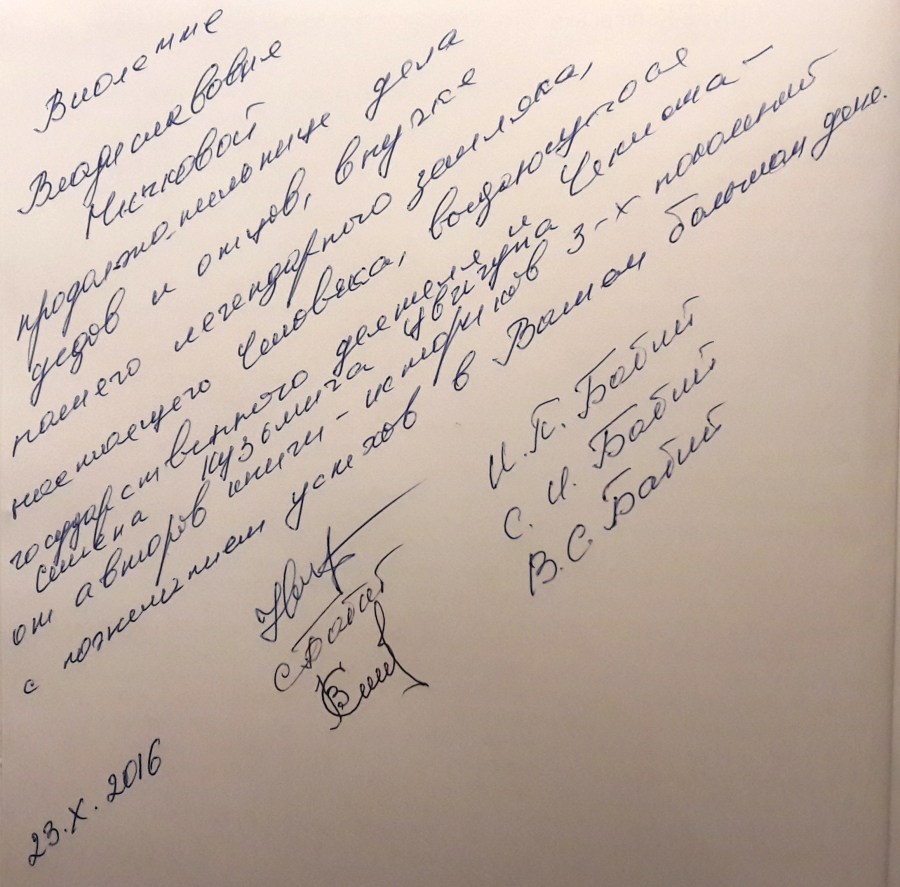 Виоленне
Владиславовне
Ничковой
продолжательнице дела
дедов и отцов, внучке
нашего легендарного земляка,
настоящего Человека, выдающегося
государственного деятеля и Чекиста –
Семёна Кузьмича Цвигуна
от авторов книги – историков 3-х поколений
с пожеланием успехов в Вашем большом деле.
И.П. Бабий
С.И. Бабий
В.С. Бабий
СБабий
23.X.2016